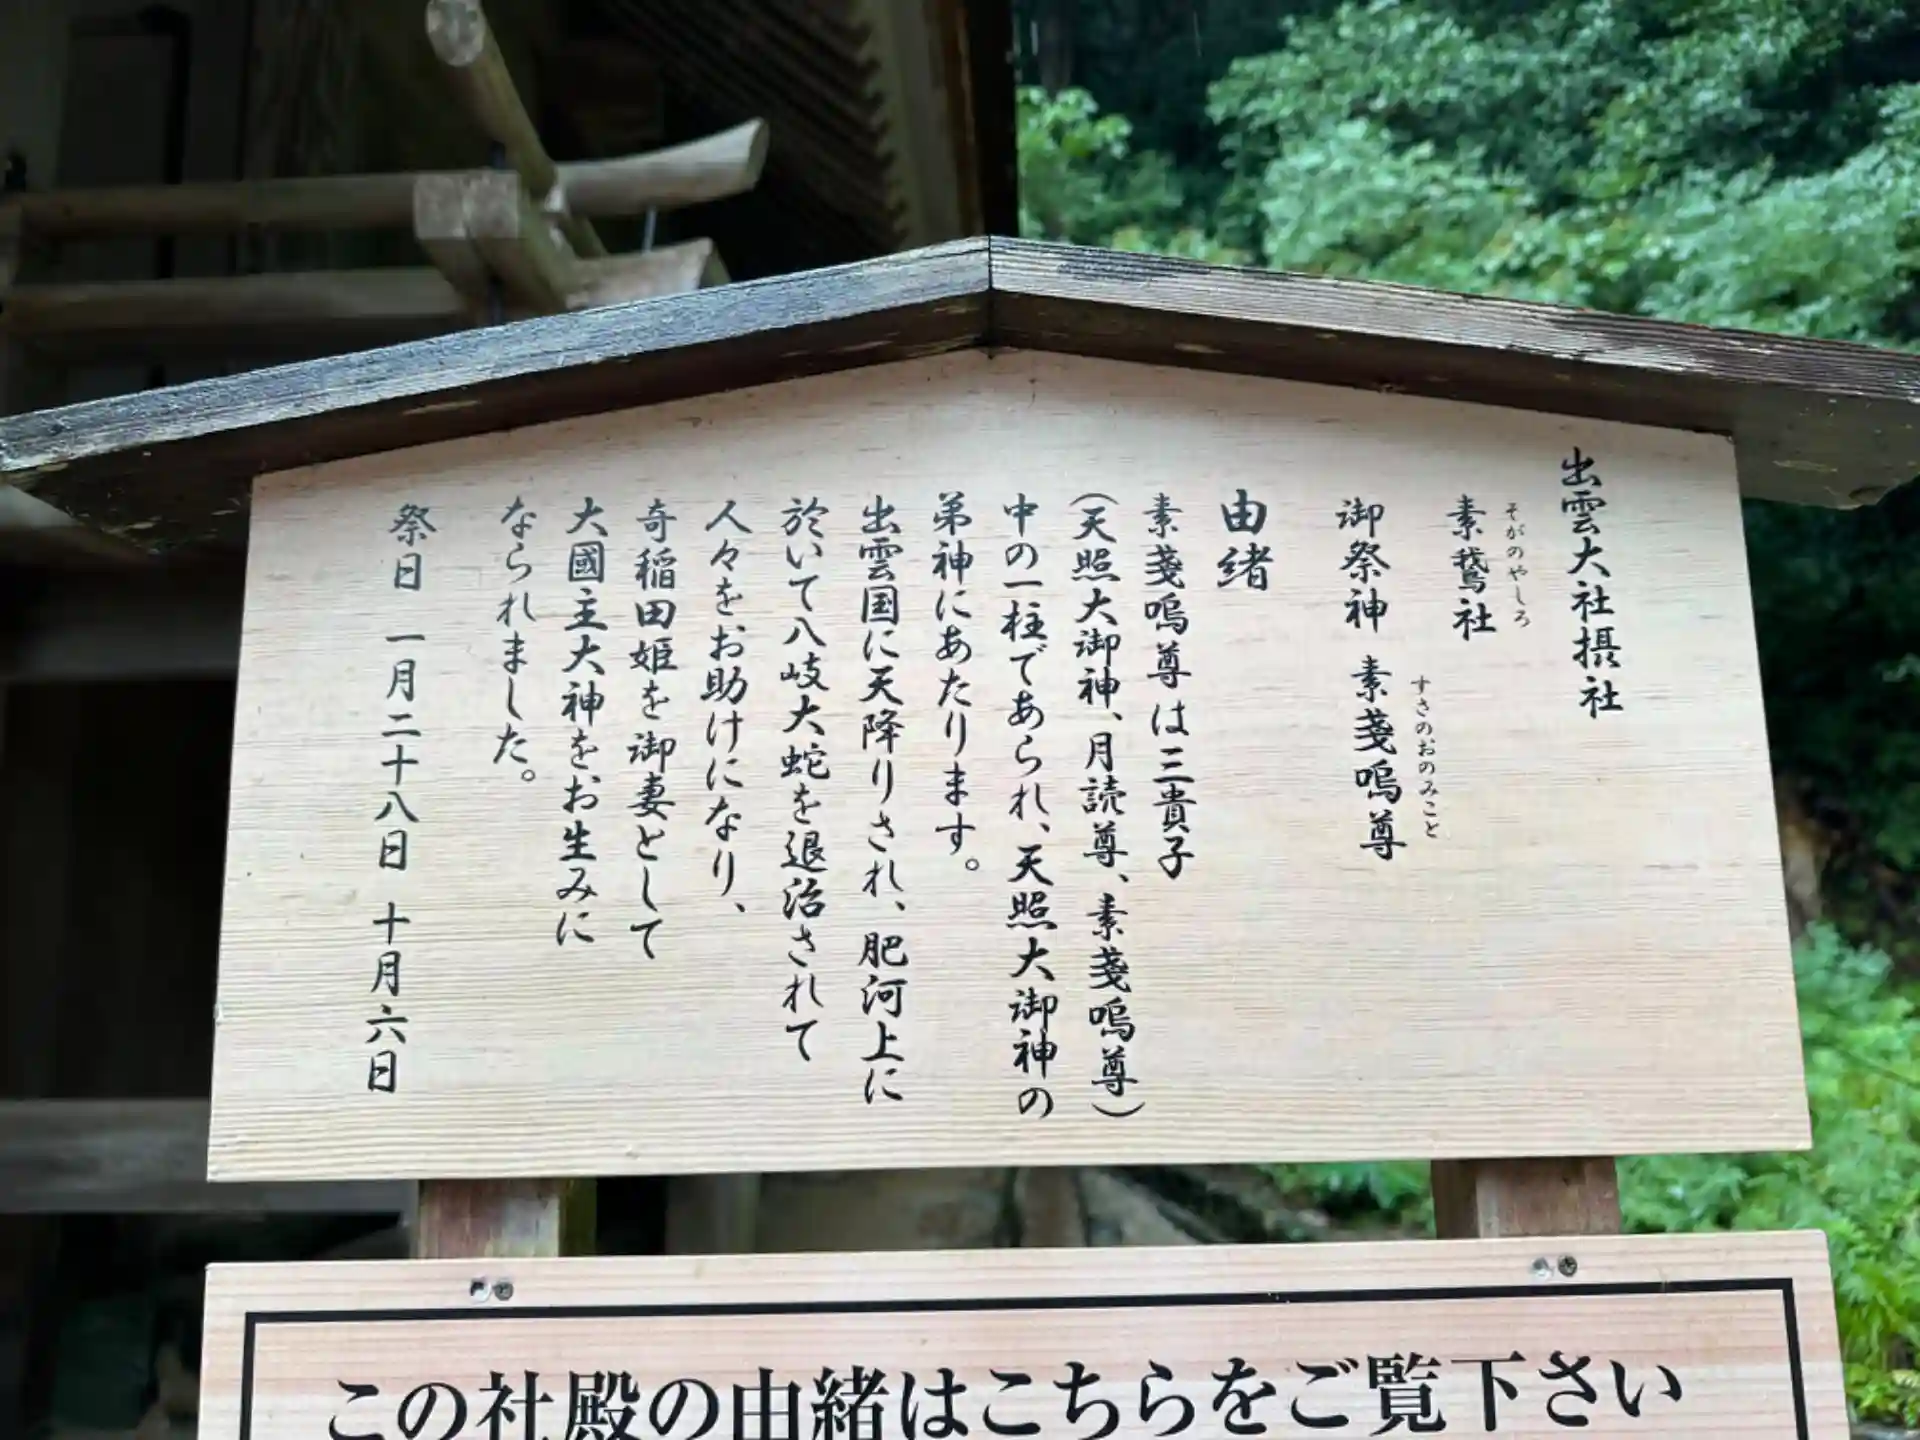 出雲大社摂社
そがのやしろ
素鵞社
すさのおのみこと
御祭神 素戔嗚尊
由緒
素戔嗚尊は三貴子
(天照大御神、月読尊、素戔嗚尊)
中の一柱であられ、天照大御神の
弟神にあたります。
出雲国に天降りされ、肥河上に
於いて八岐大蛇を退治されて
人々をお助けになり、
奇稲田姫を御妻として
大國主大神をお生みに
なられました。
祭日 一月二十八日 十月六日
この社殿の由緒はこちらをご覧下さい